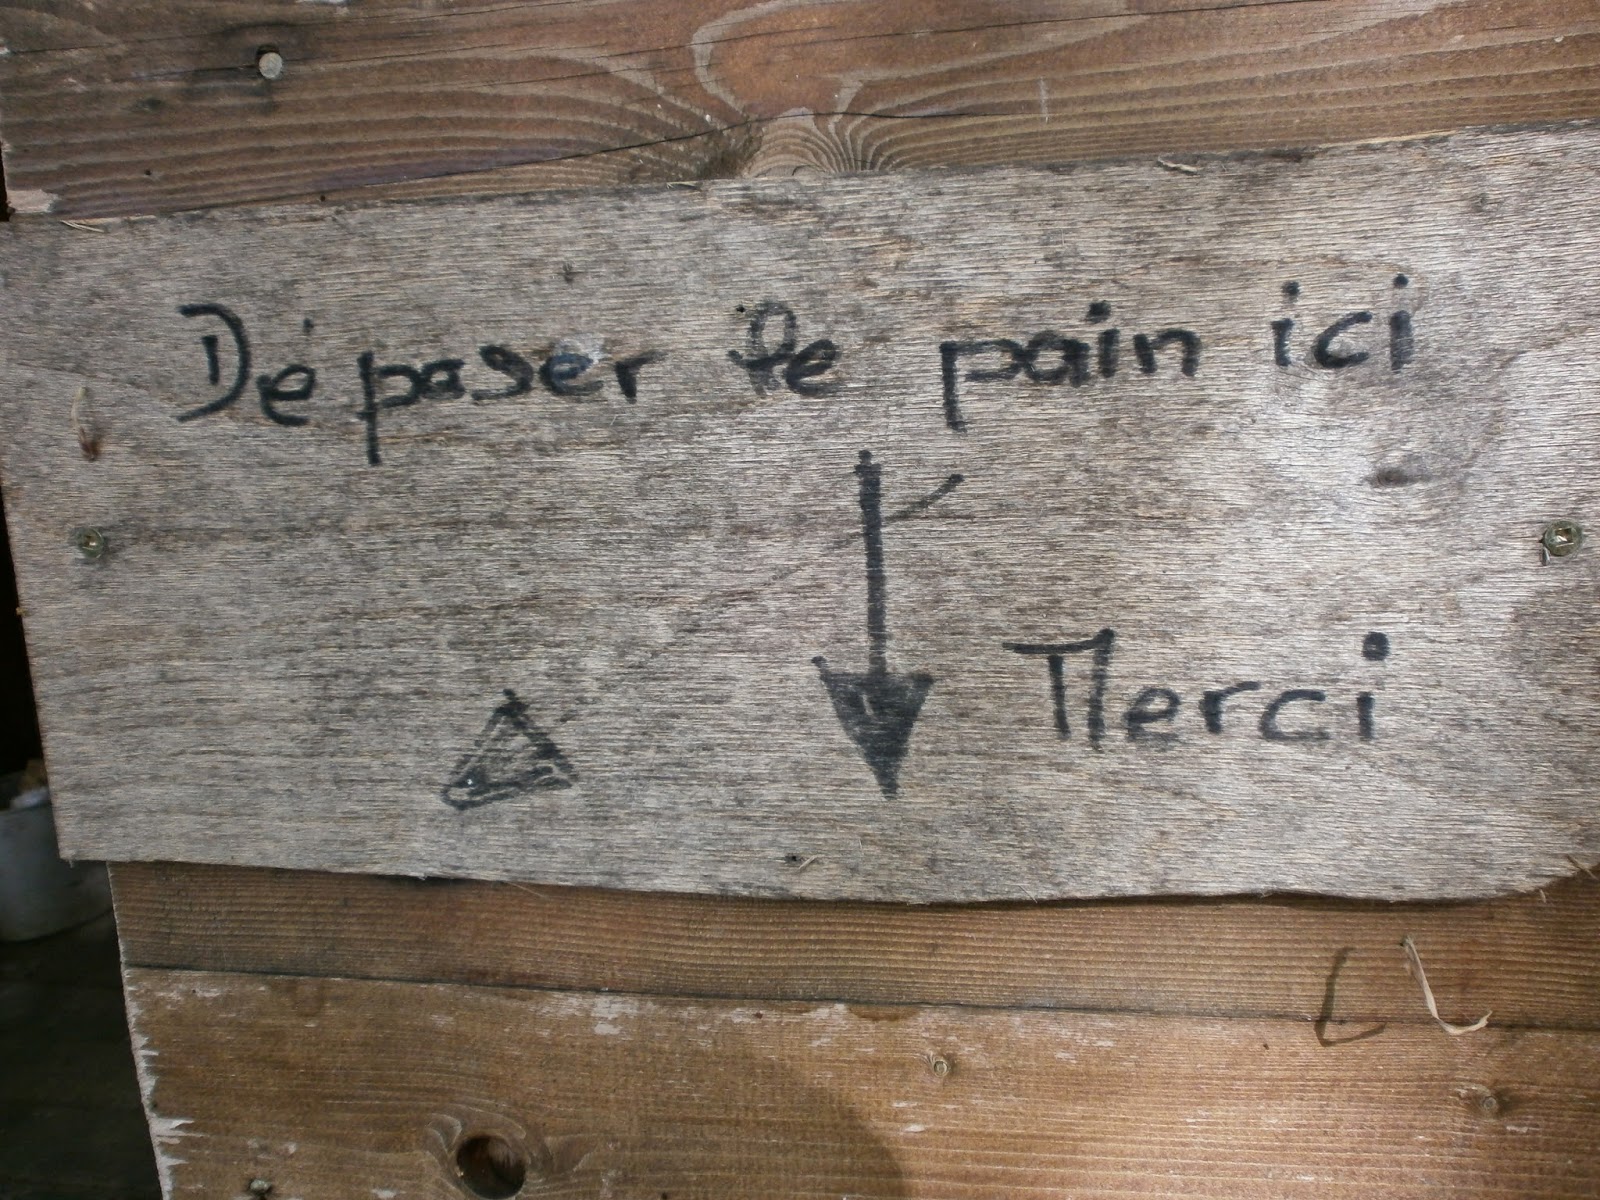 Déposer le pain ici
Merci